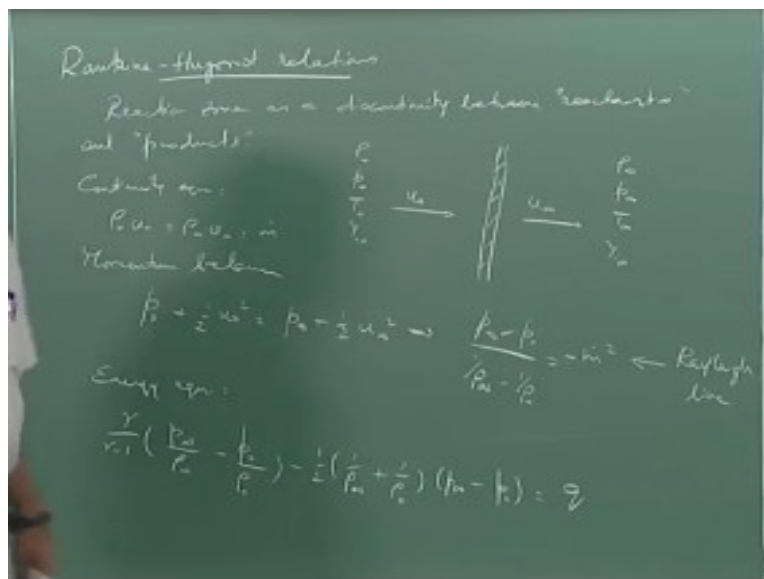 Rankine-Hugoniot relations
Reaction zone as a discontinuity between "reactants"
and "products"
Continuity eqn:
ρ₀u₀ = ρ∞u∞ = ṁ
ρ₀
p₀
T₀
Y₀
u₀
u∞
ρ∞
p∞
T∞
Y∞
Momentum balance
p₀ + ½ u₀² = p∞ + ½ u∞² → (p∞ - p₀) / (1/ρ∞ - 1/ρ₀) = -ṁ² ← Rayleigh
line
Energy eqn:
γ/(γ-1) (p∞/ρ∞ - p₀/ρ₀) - ½ (1/ρ∞ + 1/ρ₀) (p∞ - p₀) = q